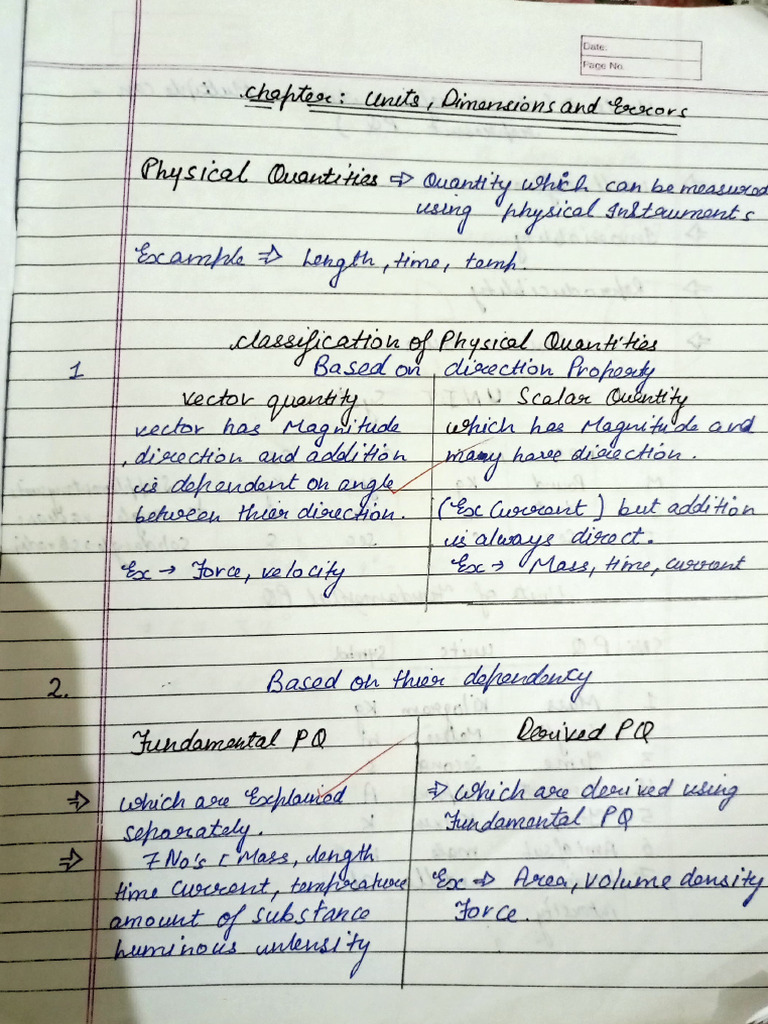 Date:
Page No.
Chapter: Units, Dimensions and Errors
Physical Quantities ⇒ Quantity which can be measured
using physical Instruments
Example ⇒ Length, time, temp.
Classification of Physical Quantities
1 Based on direction Property
Vector quantity
vector has Magnitude
direction and addition
is dependent on angle
between thier direction.
Ex → Force, velocity
Scalar Quantity
which has Magnitude and
many have direction.
(Ex Current) but addition
is always direct.
Ex → Mass, time, current
2. Based on thier dependency
Fundamental PQ
⇒ which are Explained
separately.
⇒ 7 No's [ Mass, length
time Current, temprature
amount of substance
Luminous intensity
Derived PQ
⇒ which are derived using
Fundamental PQ
Ex ⇒ Area, volume density
Force.